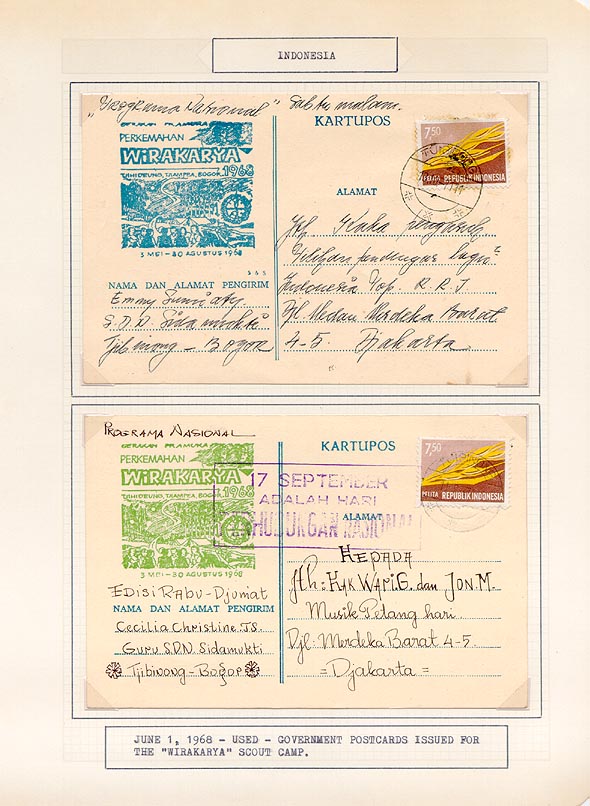 INDONESIA
"Programa Nasional" Sabtu malam.
KARTUPOS
PERKEMAHAN
WIRAKARYA
1968
TJIHIDEUNG, TJIAMPEA, BOGOR
3 MEI - 30 AGUSTUS 1968
7,50
PELITA REPUBLIK INDONESIA
ALAMAT
365
NAMA DAN ALAMAT PENGIRIM
Emmy
S.D.N. Sidamukti
Tjibinong - Bogor
Jth. Kaka pengasuh
Pilihan pendengar Lagu2
Indonesia Pop. R.R.I
Djl Medan Merdeka Barat
4-5. Djakarta
PROGRAMA NASIONAL
KARTUPOS
GERAKAN PRAMUKA
WIRAKARYA
1968
TJIHIDEUNG, TJIAMPEA, BOGOR
3 MEI - 30 AGUSTUS 1968
7,50
PELITA REPUBLIK INDONESIA
17 SEPTEMBER
ADALAH HARI
PERHUBUNGAN NASIONAL
ALAMAT
EDISI RABU - DJUMAT
NAMA DAN ALAMAT PENGIRIM
Cecilia Christine. TS.
Guru S.D.N. Sidamukti
Tjibinong - Bogor
KEPADA
Jth: KAK WATI.G. dan JON.M.
Musik Petang hari
Djl. Merdeka Barat 4-5
= Djakarta =
JUNE 1, 1968 - USED - GOVERNMENT POSTCARDS ISSUED FOR
THE "WIRAKARYA" SCOUT CAMP.